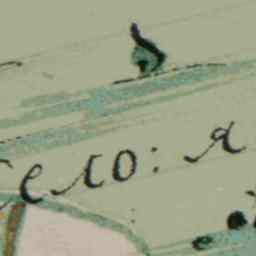 село: я